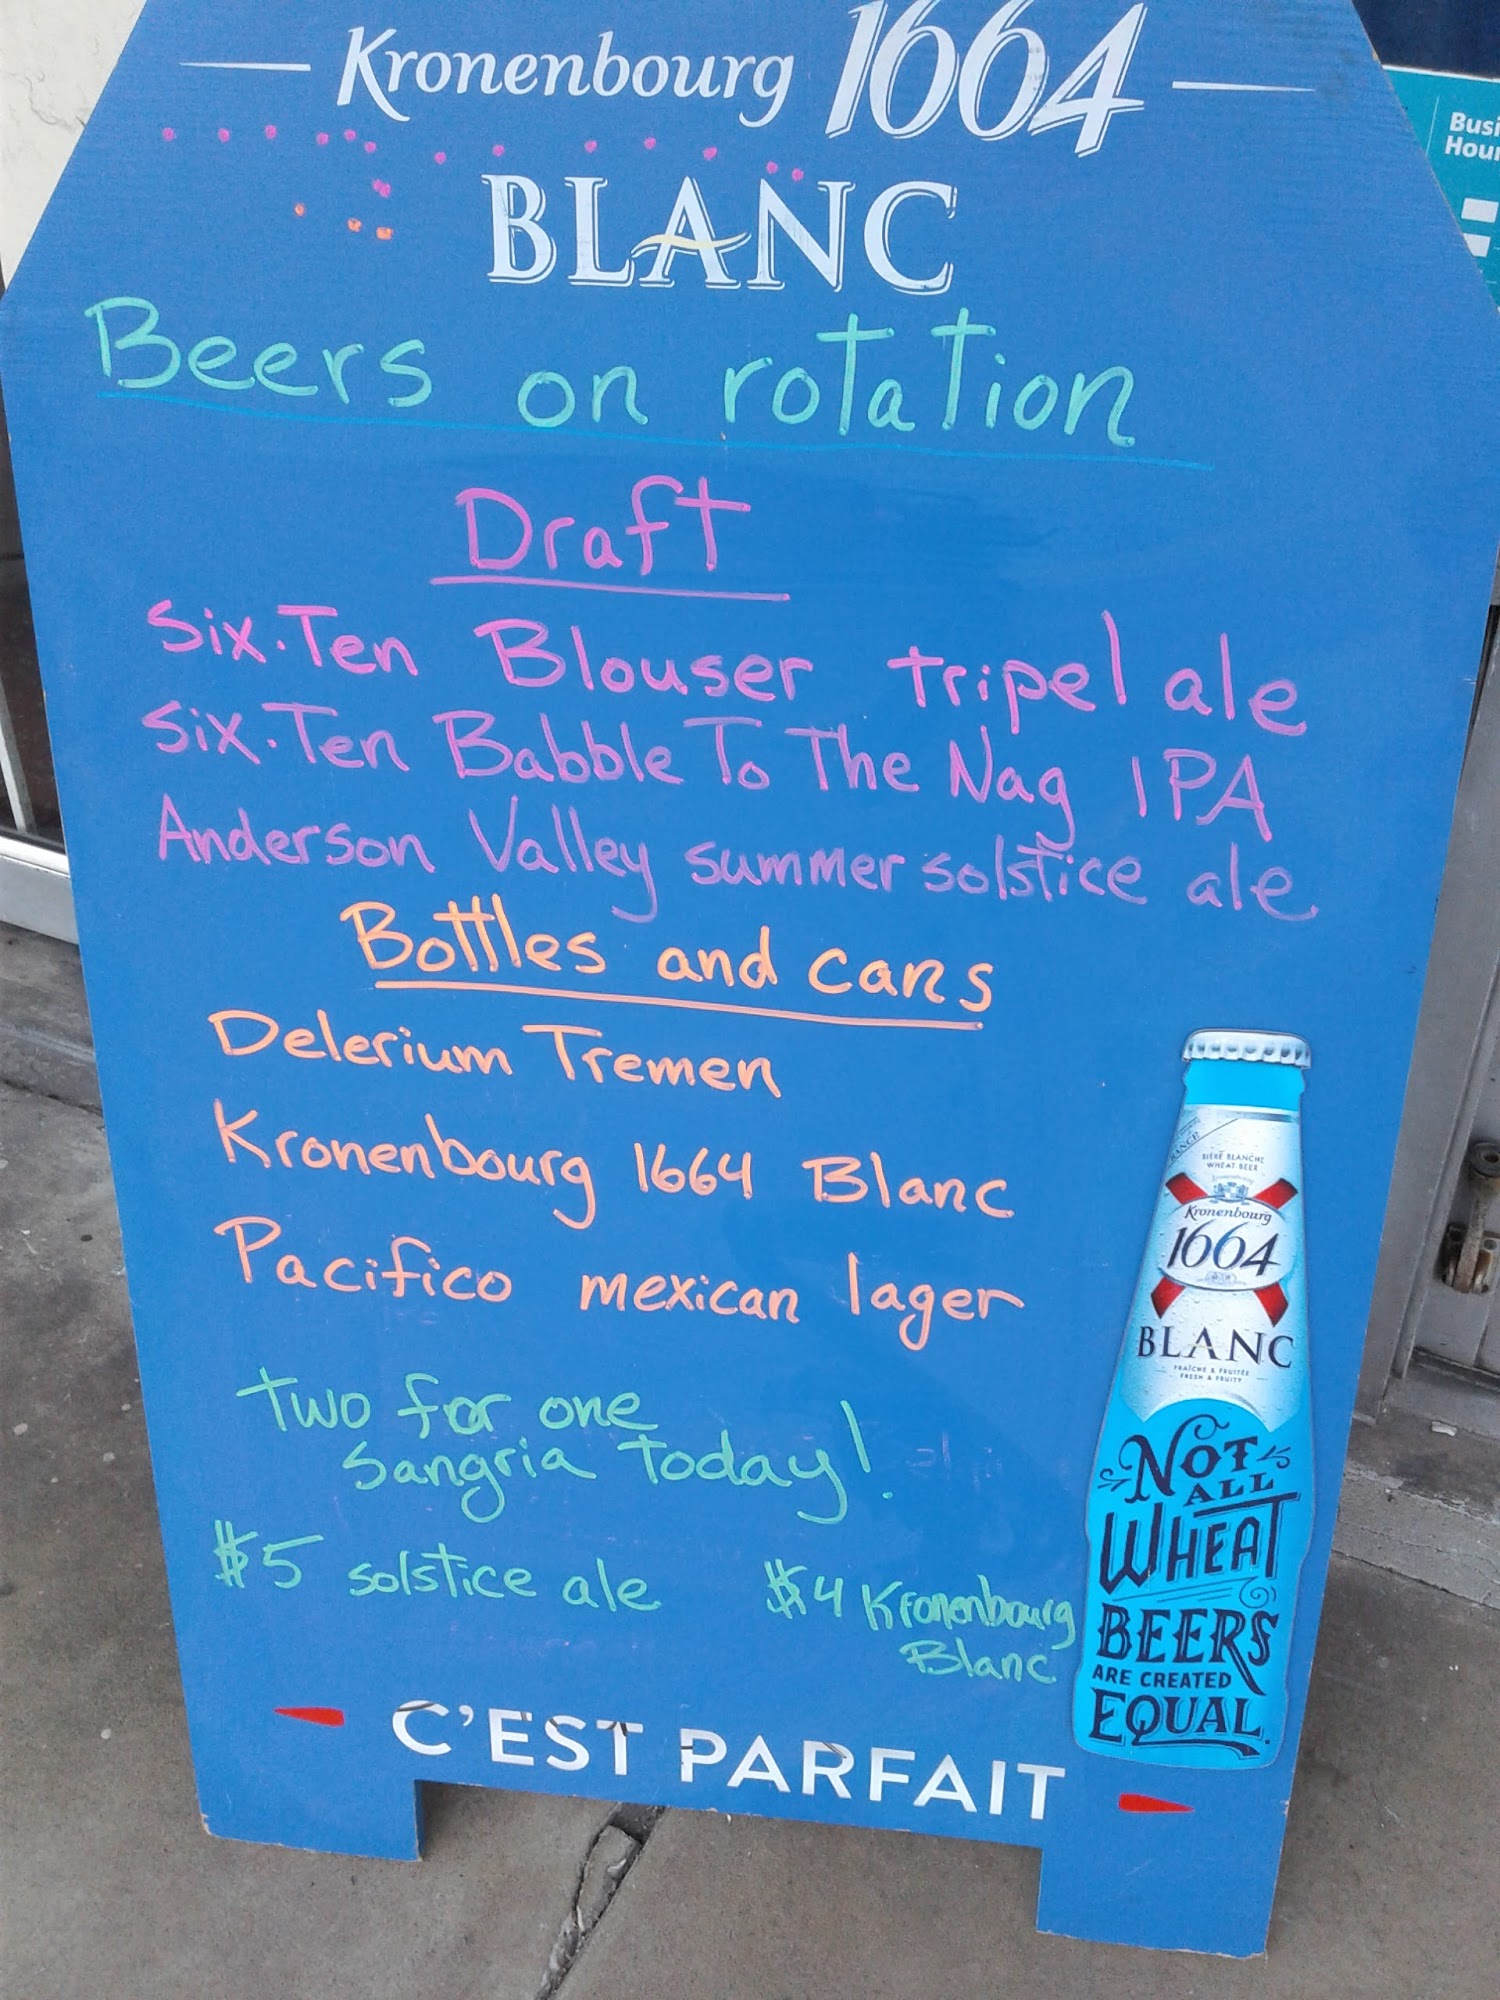 Kronenbourg 1664
BLANC
Beers on rotation
Draft
Six.Ten Blouser tripel ale
Six.Ten Babble To The Nag IPA
Anderson Valley summer solstice ale
Bottles and cans
Delerium Tremen
Kronenbourg 1664 Blanc
Pacifico mexican lager
Two for one
Sangria Today!
$5 solstice ale
$4 Kronenbourg
Blanc
BIÈRE BLANCHE
WHEAT BEER
Kronenbourg
1664
BLANC
FRAÎCHE & FRUITÉE
FRESH & FRUITY
NOT
ALL
WHEAT
BEERS
ARE CREATED
EQUAL.
C'EST PARFAIT